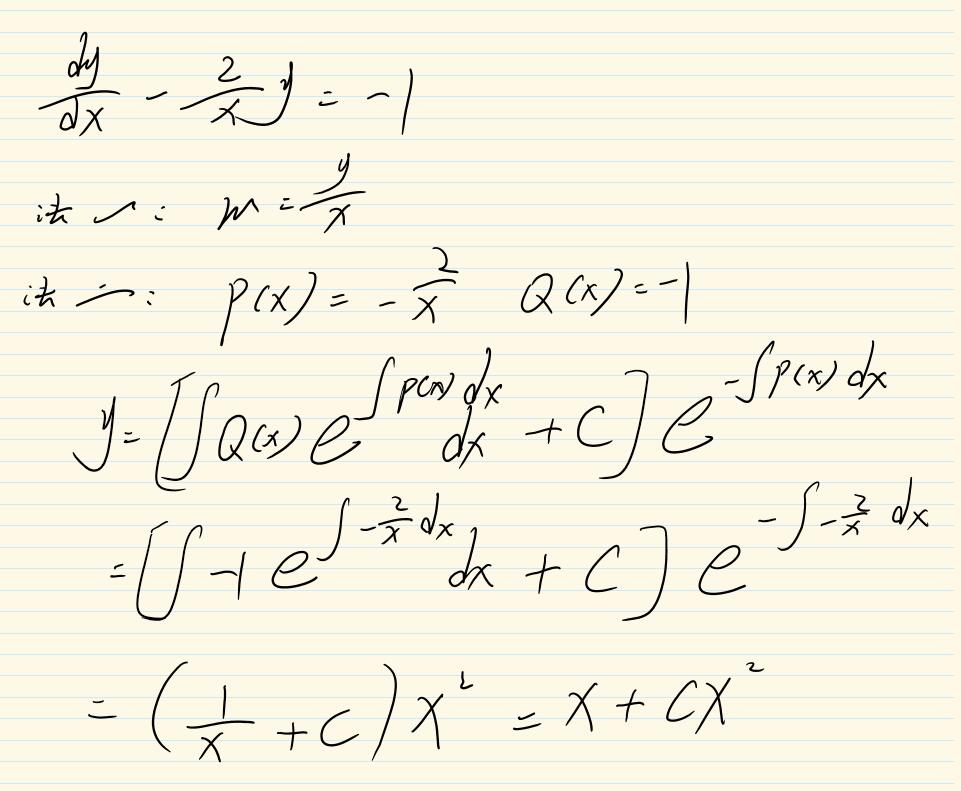 dy/dx - 2/x y = -1
法一: m = y/x
法二: p(x) = - 2/x Q(x) = -1
y = [∫Q(x) e^{∫p(x) dx} dx + C] e^{-∫p(x) dx}
= [∫ -1 e^{∫-2/x dx} dx + C] e^{-∫-2/x dx}
= (1/x + C) x² = x + Cx²